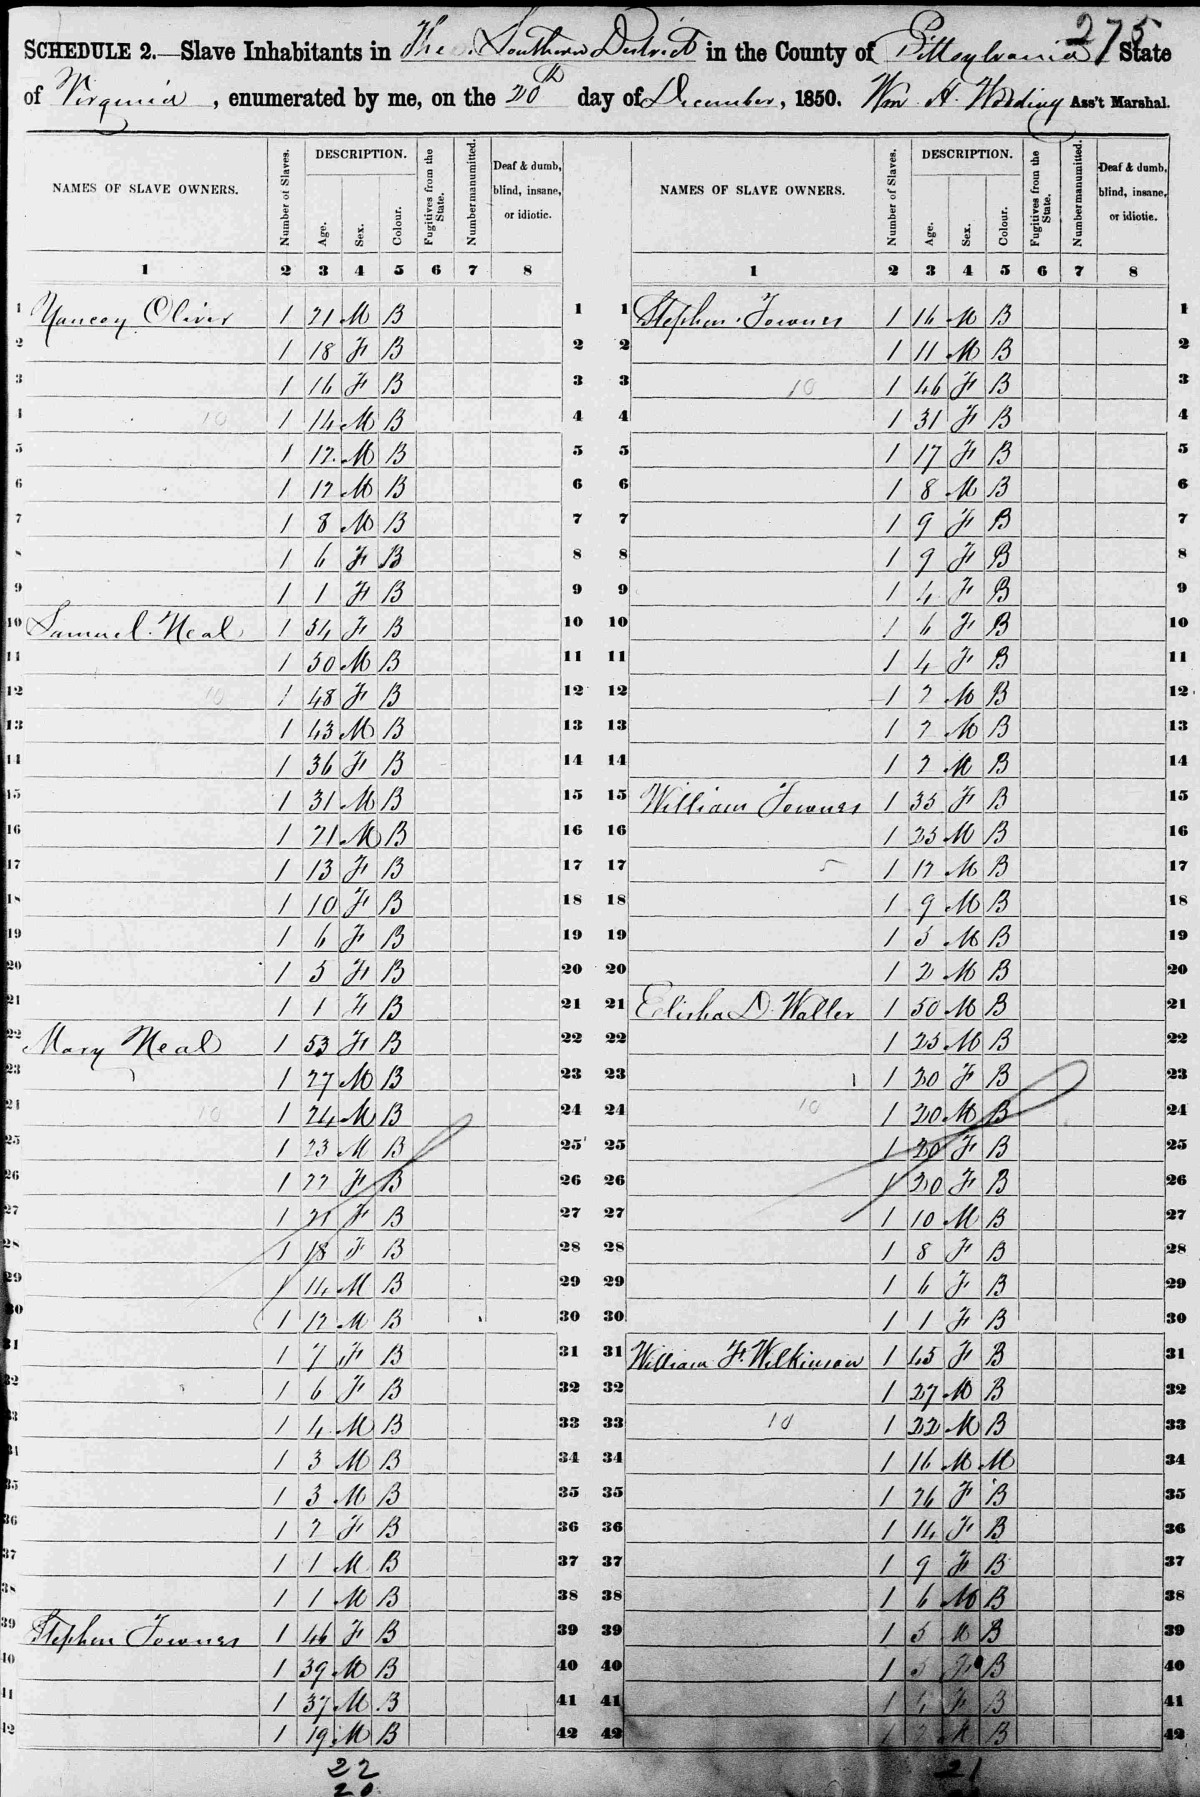 275
SCHEDULE 2.—Slave Inhabitants in The Southern District in the County of Pittsylvania State
of Virginia, enumerated by me, on the 20th day of December, 1850. Wm A. Wooding Ass't Marshal.
NAMES OF SLAVE OWNERS. Number of Slaves. DESCRIPTION. Age. Sex. Colour. Fugitives from the State. Number manumitted. Deaf & dumb, blind, insane, or idiotic. NAMES OF SLAVE OWNERS. Number of Slaves. DESCRIPTION. Age. Sex. Colour. Fugitives from the State. Number manumitted. Deaf & dumb, blind, insane, or idiotic.
1 2 3 4 5 6 7 8 1 2 3 4 5 6 7 8
1 Yancey Oliver 1 21 M B 1 1 Stephen Townes 1 16 M B 1
2 1 18 F B 2 2 1 11 M B 2
3 1 16 F B 3 3 10 1 46 F B 3
4 10 1 14 M B 4 4 1 31 F B 4
5 1 12 M B 5 5 1 17 F B 5
6 1 12 M B 6 6 1 8 M B 6
7 1 8 M B 7 7 1 9 F B 7
8 1 6 F B 8 8 1 9 F B 8
9 1 1 F B 9 9 1 4 F B 9
10 Samuel Neal 1 54 F B 10 10 1 6 F B 10
11 1 50 M B 11 11 1 4 F B 11
12 10 1 48 F B 12 12 1 2 M B 12
13 1 43 M B 13 13 1 2 M B 13
14 1 36 F B 14 14 1 2 M B 14
15 1 31 M B 15 15 William Townes 1 35 F B 15
16 1 21 M B 16 16 1 25 M B 16
17 1 13 F B 17 17 5 1 12 M B 17
18 1 10 F B 18 18 1 9 M B 18
19 1 6 F B 19 19 1 5 M B 19
20 1 5 F B 20 20 1 2 M B 20
21 1 1 F B 21 21 Elisha D. Waller 1 50 M B 21
22 Mary Neal 1 53 F B 22 22 1 25 M B 22
23 1 27 M B 23 23 1 1 20 F B 23
24 10 1 24 M B 24 24 10 1 20 M B 24
25 1 23 M B 25 25 1 20 F B 25
26 1 22 F B 26 26 1 20 F B 26
27 1 21 F B 27 27 1 10 M B 27
28 1 18 F B 28 28 1 8 F B 28
29 1 14 M B 29 29 1 6 F B 29
30 1 12 M B 30 30 1 1 F B 30
31 1 7 F B 31 31 William F. Wilkinson 1 45 F B 31
32 1 6 F B 32 32 1 27 M B 32
33 1 4 M B 33 33 10 1 22 M B 33
34 1 3 M B 34 34 1 16 M M 34
35 1 3 M B 35 35 1 26 F B 35
36 1 2 F B 36 36 1 14 F B 36
37 1 1 M B 37 37 1 9 F B 37
38 1 1 M B 38 38 1 6 M B 38
39 Stephen Townes 1 46 F B 39 39 1 5 M B 39
40 1 39 M B 40 40 1 5 F B 40
41 1 37 M B 41 41 1 F B 41
42 1 19 M B 42 42 1 M B 42
22 21
20